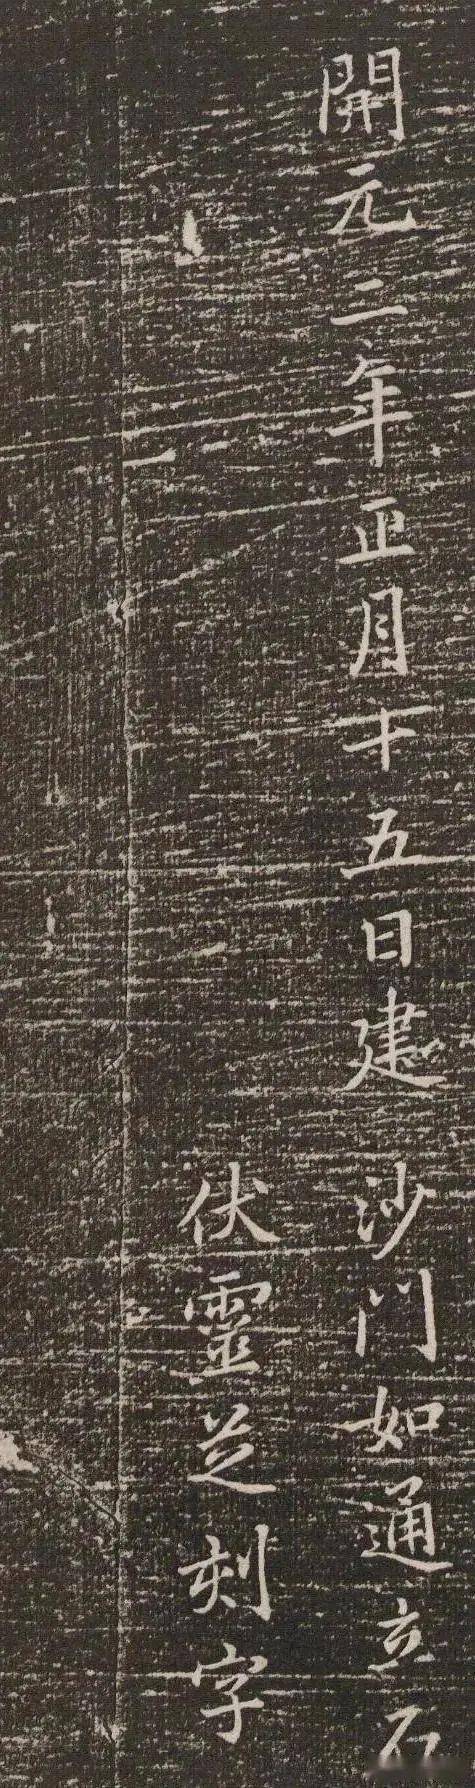 開元二年正月十五日建 沙門如通立石
伏靈芝刻字